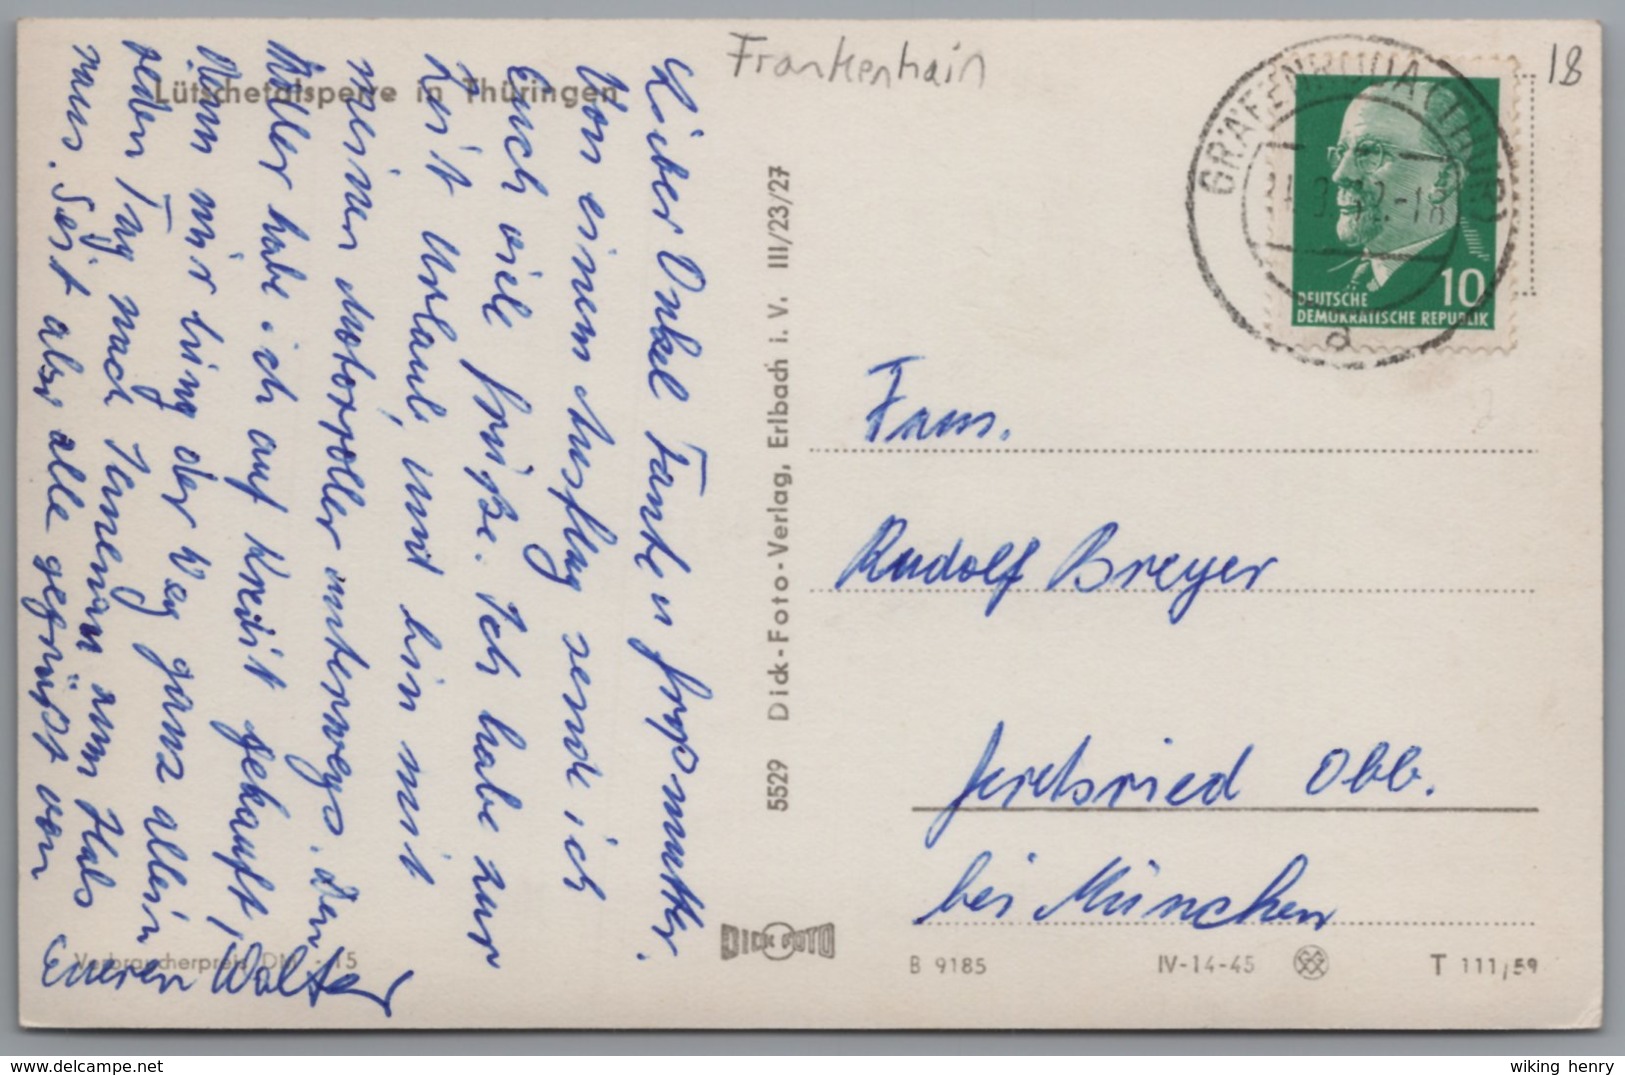 Frankenhain
18
Lütschetalsperre in Thüringen
Lieber Onkel Tante u Großmutter.
Von einem Ausflug sende ich
Euch viele Grüße. Ich habe zur
Zeit Urlaub, und bin mit
meinen Motorroller unterwegs. Den
Roller habe ich auf Kredit gekauft,
denn mir hing der Weg ganz allein
jeden Tag nach Ilmenau zum Hals
raus. Seit also alle gegrüßt von
Eueren Walter
Verbraucherpreis DM -.15
5529 Dick-Foto-Verlag, Erlbach i. V. III/23/27
GRÄFENRODA (THÜR)
-18
a
10
DEUTSCHE
DEMOKRATISCHE REPUBLIK
Fam.
Rudolf Breyer
Geretsried Obb.
bei München
DICK FOTO
B 9185
IV-14-45
T 111/59
wiking henry